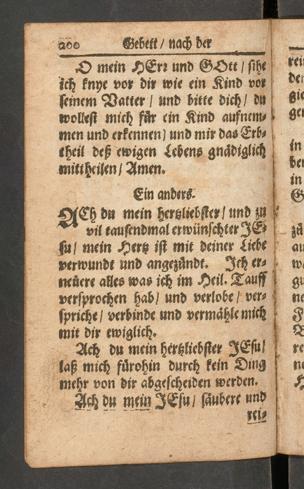 200 Gebett / nach der
O mein HErr und GOtt / sihe
ich knye vor dir wie ein Kind vor
seinem Vatter / und bitte dich / du
wollest mich für ein Kind aufnem-
men und erkennen / und mir das Erb-
theil deß ewigen Lebens gnädiglich
mittheilen / Amen.
Ein anders.
ACh du mein hertzliebster / und zu
vil tausendmal erwünschter JE-
su / mein Hertz ist mit deiner Liebe
verwundt und angezündt. Ich er-
neüere alles was ich im Heil. Tauff
versprochen hab / und verlobe / ver-
spriche / verbinde und vermähle mich
mit dir ewiglich.
Ach du mein hertzliebster JEsu /
laß mich fürohin durch kein Ding
mehr von dir abgescheiden werden.
Ach du mein JEsu / säubere und
rei-